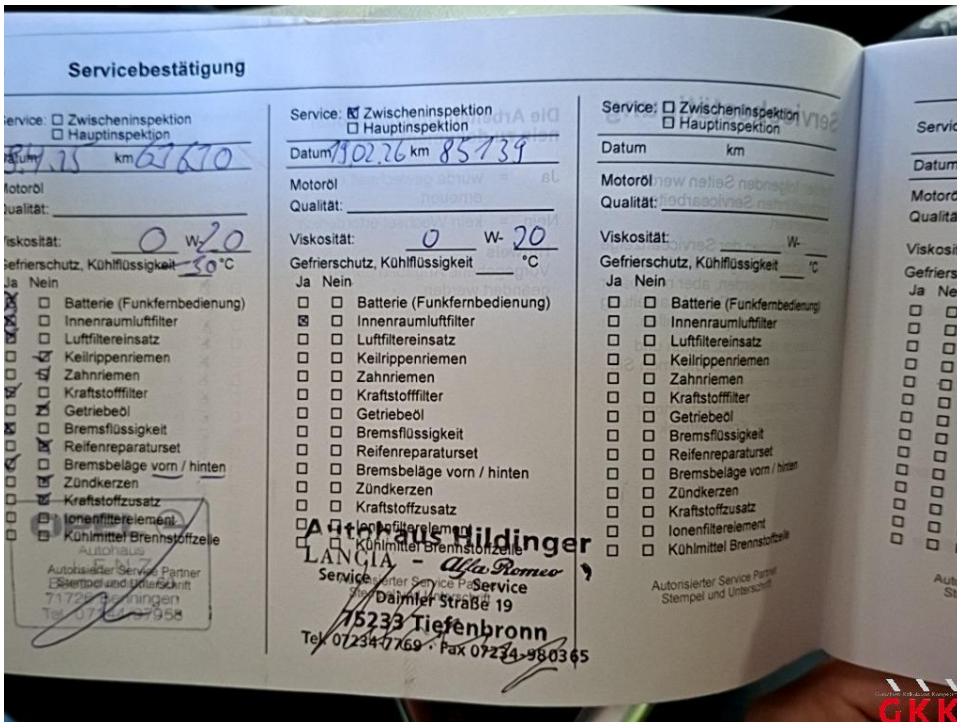 Servicebestätigung
Service: Zwischeninspektion
Hauptinspektion
Datum km 61670
Motoröl
Qualität:
Viskosität: 0 W-20
Gefrierschutz, Kühlflüssigkeit -30 °C
Ja Nein
Batterie (Funkfernbedienung)
Innenraumluftfilter
Luftfiltereinsatz
Keilrippenriemen
Zahnriemen
Kraftstofffilter
Getriebeöl
Bremsflüssigkeit
Reifenreparaturset
Bremsbeläge vorn / hinten
Zündkerzen
Kraftstoffzusatz
Ionenfilterelement
Kühlmittel Brennstoffzelle
Autohaus
Autorisierter Service Partner
Stempel und Unterschrift
Service: Zwischeninspektion
Hauptinspektion
Datum 19.02.26 km 85139
Motoröl
Qualität:
Viskosität: 0 W- 20
Gefrierschutz, Kühlflüssigkeit °C
Ja Nein
Batterie (Funkfernbedienung)
Innenraumluftfilter
Luftfiltereinsatz
Keilrippenriemen
Zahnriemen
Kraftstofffilter
Getriebeöl
Bremsflüssigkeit
Reifenreparaturset
Bremsbeläge vorn / hinten
Zündkerzen
Kraftstoffzusatz
Ionenfilterelement
Kühlmittel Brennstoffzelle
Autohaus Hildinger
LANCIA - Alfa Romeo
Service Service
Daimler Straße 19
75233 Tiefenbronn
Tel. 07234-7769 · Fax 07234-980365
Service: Zwischeninspektion
Hauptinspektion
Datum km
Motoröl
Qualität:
Viskosität: W-
Gefrierschutz, Kühlflüssigkeit °C
Ja Nein
Batterie (Funkfernbedienung)
Innenraumluftfilter
Luftfiltereinsatz
Keilrippenriemen
Zahnriemen
Kraftstofffilter
Getriebeöl
Bremsflüssigkeit
Reifenreparaturset
Bremsbeläge vorn / hinten
Zündkerzen
Kraftstoffzusatz
Ionenfilterelement
Kühlmittel Brennstoffzelle
Autorisierter Service Partner
Stempel und Unterschrift
Datum
Ja
GKK